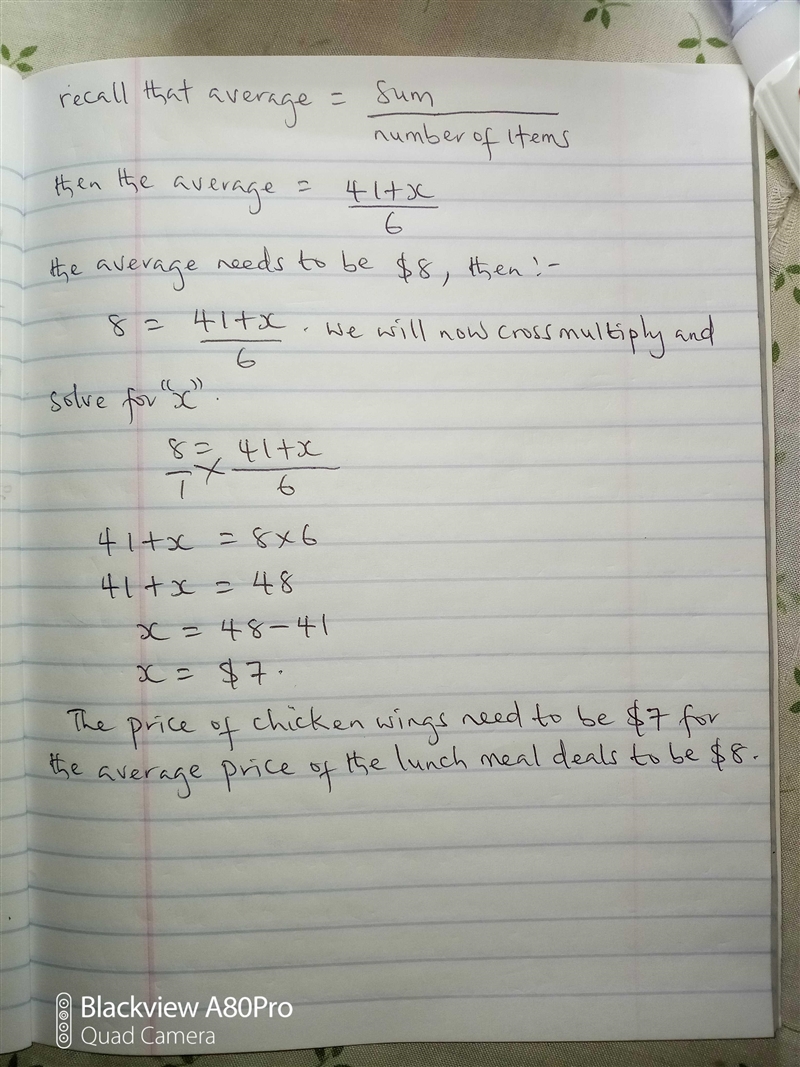 recall that average = sum
number of items
then the average = 41+x
6
the average needs to be $8, then :-
8 = 41+x . we will now crossmultiply and
6
solve for "x".
8 = 41+x
1 × 6
41+x = 8×6
41+x = 48
x = 48-41
x = $7.
The price of chicken wings need to be $7 for
the average price of the lunch meal deals to be $8.
Blackview A80Pro
Quad Camera